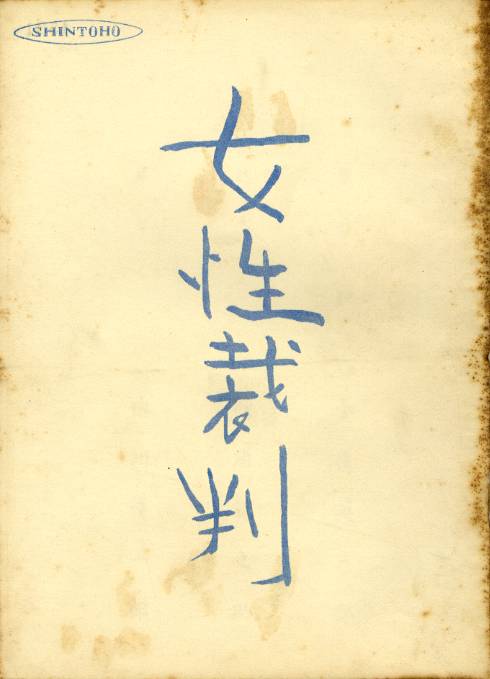 SHINTOHO
女性裁判